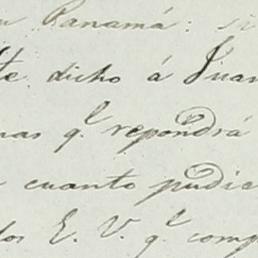 n Panamá: si
te dicho á Juan
nas q.l repondrá
cuanto pudie
dos E. V. q.l comp